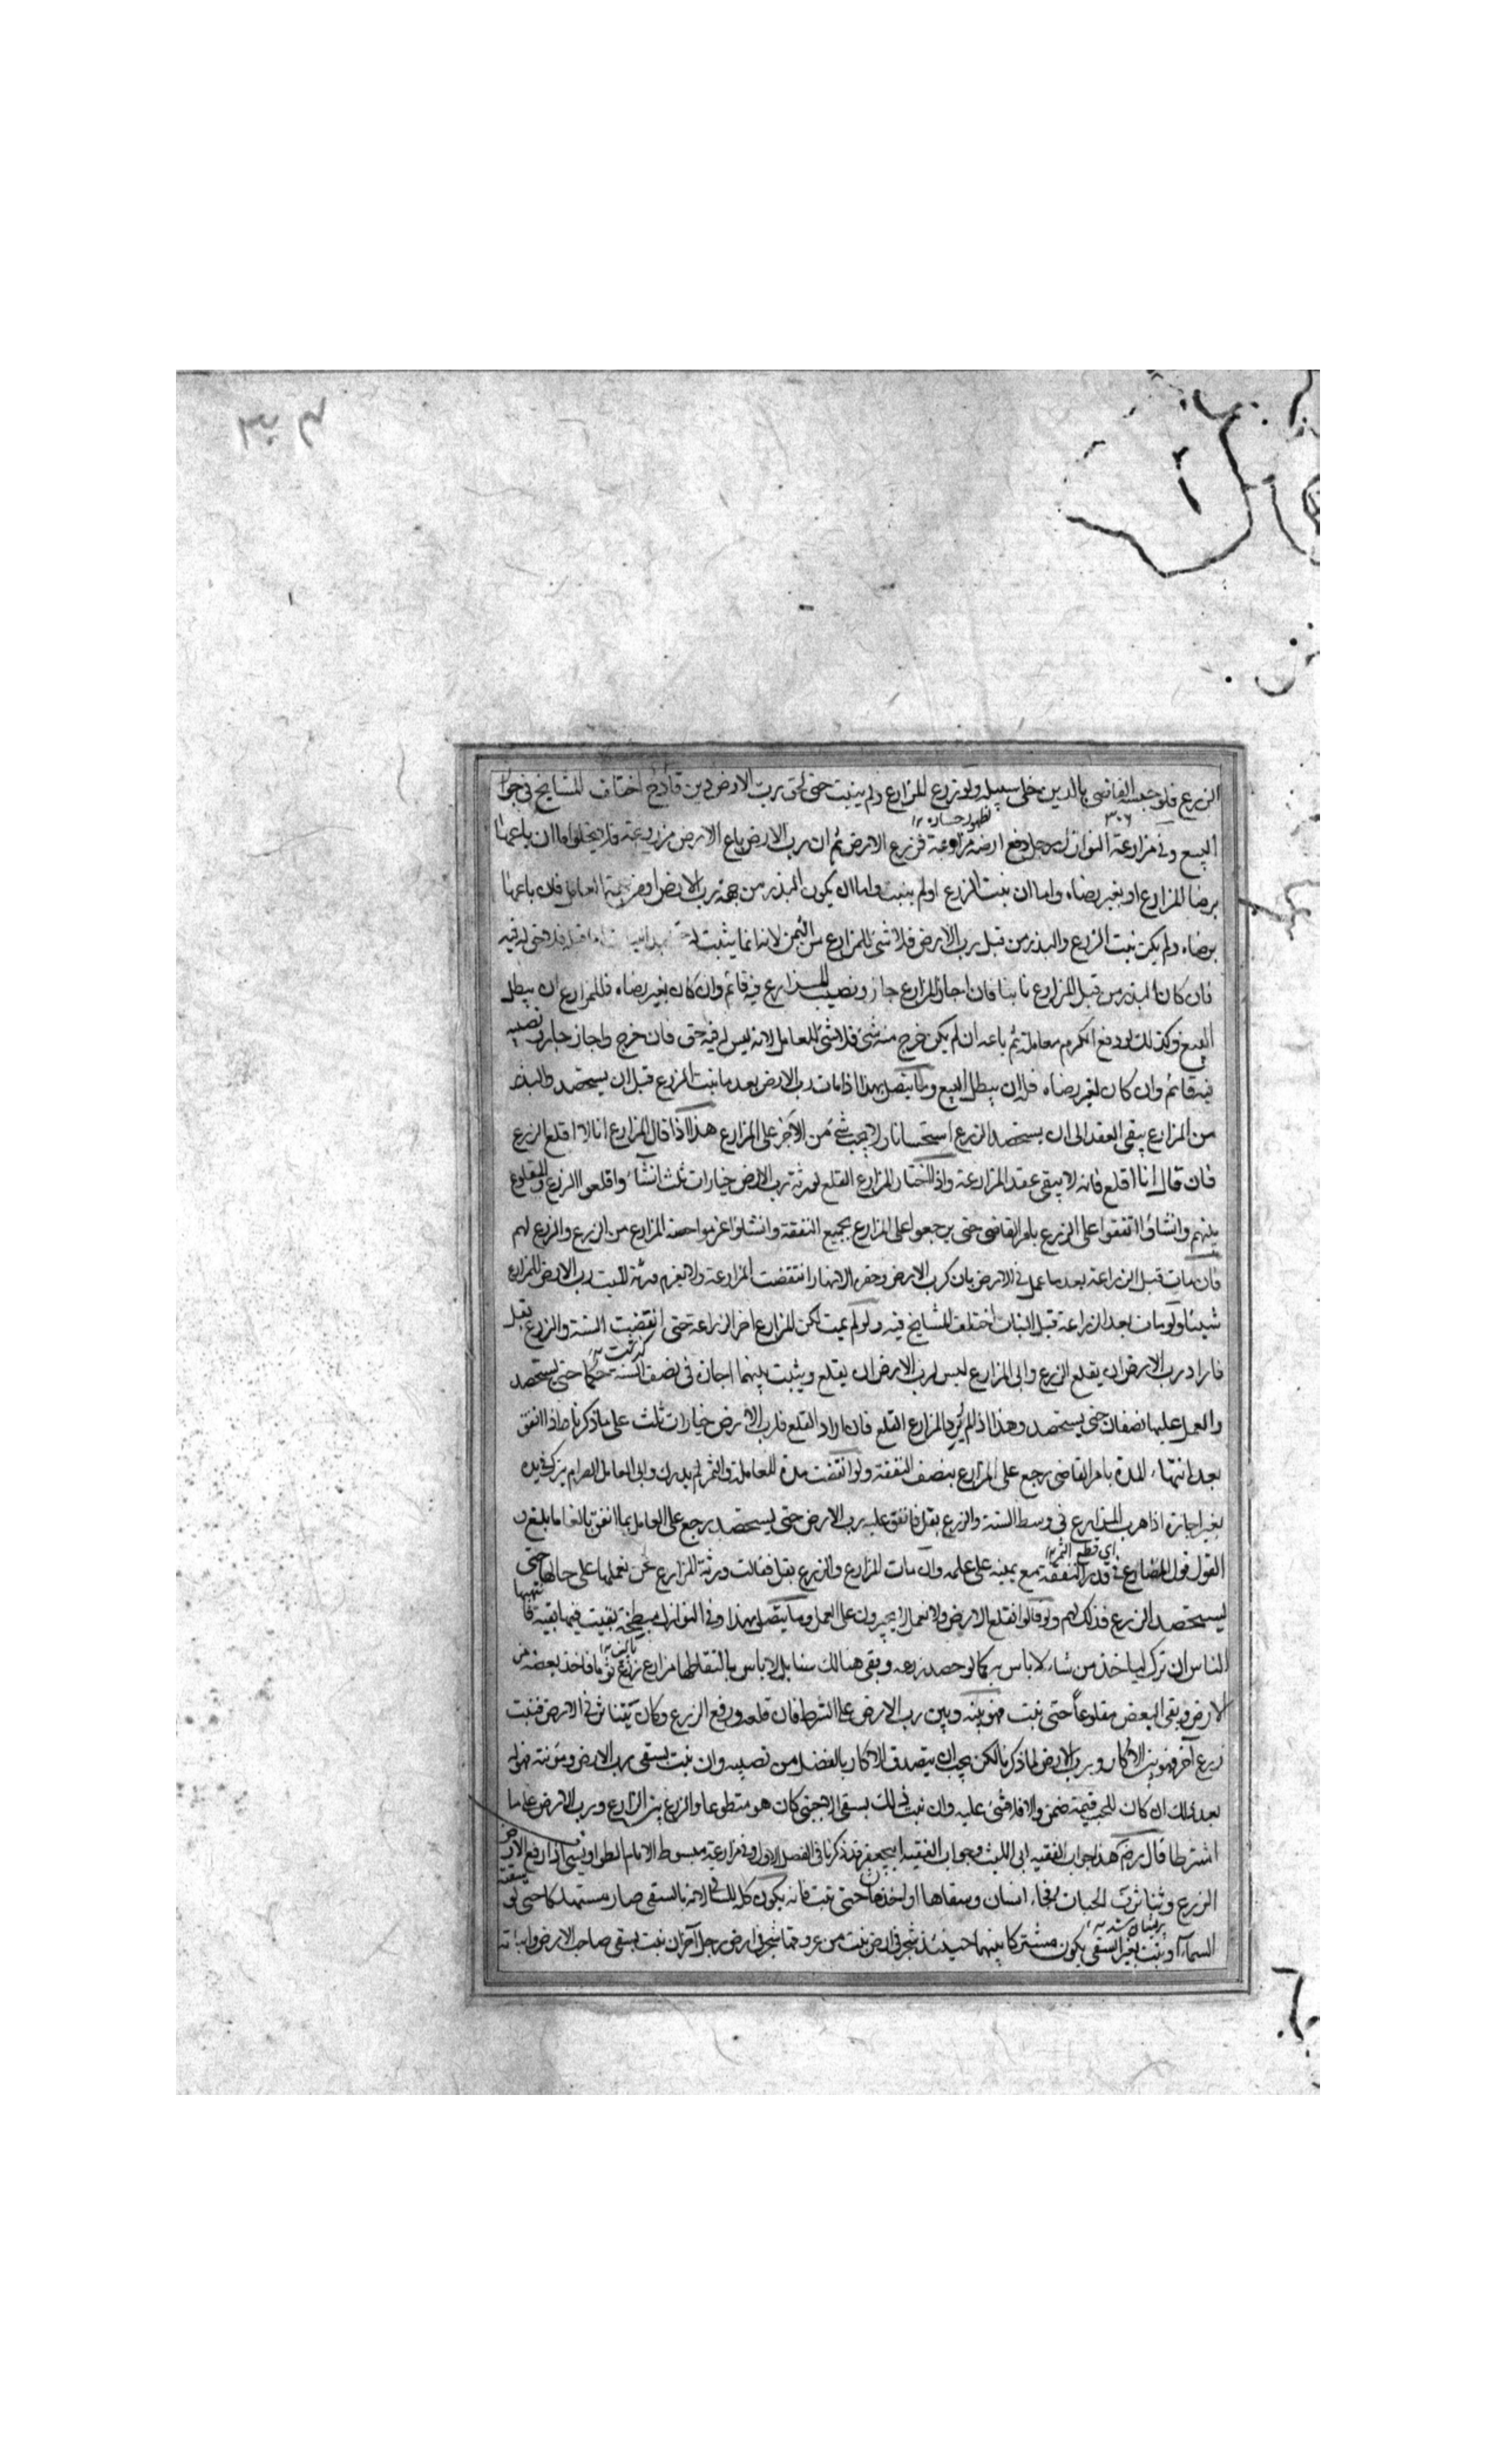 الزرع فلو حبسه القاضى بالدين خلى سبيله ولو زرع المزارع ولم ينبت حتى لحق رب الارض دين فادح اختلف المشايخ فى جواز
البيع وفى مزارعة النوازل رجل دفع ارضه مزارعة فزرع الارض ثم ان رب الارض باع الارض مزروعة فلا يخلو اما ان باعها
برضا المزارع او بغير رضاه واما ان نبت الزرع او لم ينبت واما ان يكون البذر من جهة رب الارض او من جهة العامل فان باعها
برضاه ولم يكن نبت الزرع والبذر من قبل رب الارض فلا شئ للمزارع من الثمن لانه انما يثبت له
فان كان البذر من قبل المزارع نابتا فان اجاز المزارع جاز ونصيب المزارع فيه قائم وان كان بغير رضاه فللمزارع ان يبطل
البيع وكذلك لو دفع الكرم معاملة ثم باعه ان لم يكن خرج منه شئ فلا شئ للعامل لانه ليس له فيه حق فان خرج واجاز جاز ونصيبه
فيه قائم وان كان بغير رضاه فله ان يبطل البيع وما يتصل بهذا اذا مات رب الارض بعد ما نبت الزرع قبل ان يستحصد والبذر
من المزارع يبقى العقد الى ان يستحصد الزرع استحسانا ولا يجب شئ من الاجر على المزارع هذا اذا قال المزارع انا لا اقلع الزرع
فان قال انا اقلع فانه لا يبقى عقد المزارعة واذا اختار المزارع القلع لورثة رب الارض خيارات ثلث ان شاؤا قلعوا الزرع والمقلوع
بينهم وان شاؤا انفقوا على الزرع بامر القاضى حتى يرجعوا على المزارع بجميع النفقة وان شاؤا غرموا حصة المزارع من الزرع والزرع لهم
فان مات قبل الزراعة بعد ما عمل فى الارض بان كرب الارض وحفر الانهار انتقضت المزارعة ولا يغرم ورثة الميت رب الارض للمزارع
شيئا ولو مات بعد الزراعة قبل النبات اختلف المشايخ فيه ولو لم يمت لكن المزارع اخر الزراعة حتى انقضت السنة والزرع بقل
فاراد رب الارض ان يقلع الزرع وابى المزارع ليس لرب الارض ان يقلع ويثبت بينهما اجارة فى نصف السنة حكما حتى يستحصد
والعمل عليهما نصفان حتى يستحصد وهذا اذا لم يرد المزارع القلع فان اراد القلع فلرب الارض خيارات ثلث على ما ذكرنا واذا انفق
بعد انتهاء المدة بامر القاضى رجع على المزارع بنصف النفقة ولو انقضت مدة المعاملة والثمر لم يدرك وابى العامل الصرام يترك فى يده
بغير اجارة اذا هرب المزارع فى وسط السنة والزرع بقل فانفق عليه رب الارض حتى يستحصد يرجع على العامل بما انفق بالغا ما بلغ
القول قول المزارع فى قدر النفقة مع يمينه على علمه وان مات المزارع والزرع بقل فقالت ورثة المزارع نحن نعملها على حالها حتى
يستحصد الزرع فذلك لهم ولو قالوا نقلع الارض ولا نعمل لا يجبرون على العمل وما يتصل بهذا وفى النوازل مبطخة بقيت فيها بقية
الناس ان ترك لياخذ من شاء لا باس به كما لو حصد زرعه وبقى هنالك سنابل لا باس بالتقاطها مزارع زرع ثوما فاخذ بعضه من
الارض وبقى البعض مقلوعا حتى نبت فهو بينه وبين رب الارض على الشرط فان قلعه ورفع الزرع وكان يتناثر فى الارض فنبت
زرع آخر فهو بين الاكار ورب الارض لما ذكرنا لكن يجب ان يتصدق الاكار بالفضل من نصيبه وان نبت بسقى رب الارض ومؤنته فهو له
بعد ذلك ان كان للحب قيمة ضمن والا فلا شئ عليه وان نبت ذلك بسقى الاجنبى كان هو متطوعا والزرع بين المزارع ورب الارض على ما
اشترطا قال رضى هذا جواب الفقيه ابى الليث وجواب الفقيه ابى جعفر قد ذكرنا فى الفصل الاول وفى مزارعة مبسوط الامام الطواويسى اذا رفع الارض
الزرع وتناثرت الحبات فجاء انسان وسقاها او اخذها حتى نبت فانه يكون كله لذلك لانه بالسقى صار مستهلكا حتى لو سقته
السماء او نبت بغير السقى يكون مشتركا بينهما حينئذ شجر فى ارض نبت من عروقها شجر فى ارض رجل آخر ان نبت بسقى صاحب الارض وانباته